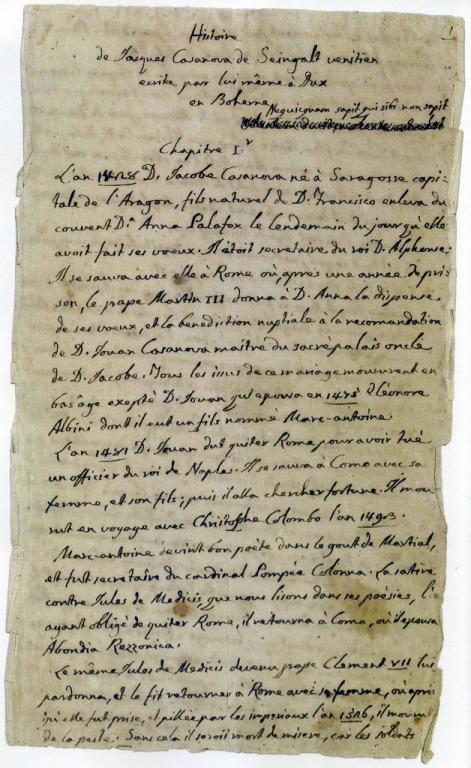 1
Histoire
de Jacques Casanova de Seingalt venitien
ecrite par lui même à Dux
en Boheme
Nequicquam sapit qui sibi non sapit
Chapitre I.r
L'an 1428 D. Jacobe Casanova né à Saragosse capi-
tale de l'Aragon, fils naturel de D. Francisco enleva du
couvent D.a Anna Palafox le lendemain du jour qu'elle
avoit fait ses voeux. Il étoit secretaire du roi D. Alphonse.
Il se sauva avec elle à Rome où, après une année de pri-
son, le pape Martin III donna à D. Anna la dispense
de ses voeux, et la benediction nuptiale à la recomandation
de D. Jouan Casanova maître du sacré palais oncle
de D. Jacobe. Tous les issus de ce mariage moururent en
bas âge exepté D. Jouan qui epousa en 1475 Eléonore
Albini dont il eut un fils nommé Marc-antoine.
L'an 1481 D. Jouan dut quiter Rome pour avoir tué
un officier du roi de Naples. Il se sauva à Como avec sa
femme, et son fils; puis il alla chercher fortune. Il mou-
rut en voyage avec Christophe Colombo l'an 1493.
Marc-antoine devint bon poëte dans le gout de Martial,
et fut secretaire du cardinal Pompée Colonna. La satire
contre Jules de Medicis, que nous lisons dans ses poésies, l'
ayant obligé de quiter Rome, il retourna à Como, où il epousa
Abondia Rezzonica.
Le même Jules de Medicis devenu pape Clement VII lui
pardonna, et le fit retourner à Rome avec sa femme, où après
qu'elle fut prise, et pillée par les imperiaux l'an 1526, il mourut
de la peste. Sans cela il seroit mort de misere, car les soldats